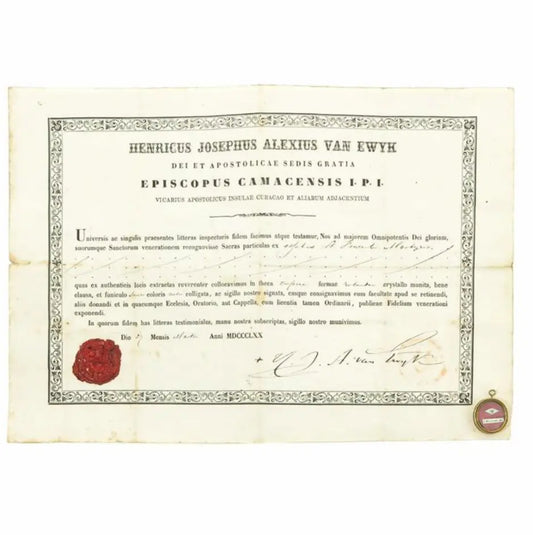 HENRICUS JOSEPHUS ALEXIUS VAN EWYK
DEI ET APOSTOLICAE SEDIS GRATIA
EPISCOPUS CAMACENSIS I. P. I.
VICARIUS APOSTOLICUS INSULAE CURACAO ET ALIARUM ADJACENTIUM
Universis ac singulis praesentes litteras inspecturis fidem facimus atque testamur, Nos ad majorem Omnipotentis Dei gloriam,
suorumque Sanctorum venerationem recognovisse Sacras particulas ex
quas ex authenticis locis extractas reverenter collocavimus in theca formae crystallo munita, bene
clausa, et funiculo coloris colligata, ac sigillo nostro signata, easque consignavimus cum facultate apud se retinendi,
aliis donandi et in quacumque Ecclesia, Oratorio, aut Cappella, cum licentia Ordinarii, publicae Fidelium venerationi
exponendi.
In quorum fidem has litteras testimoniales, manu nostra subscriptas, sigillo nostro munivimus.
Die Mensis Anni MDCCCLXX
+ H. J. A. van Ewyk